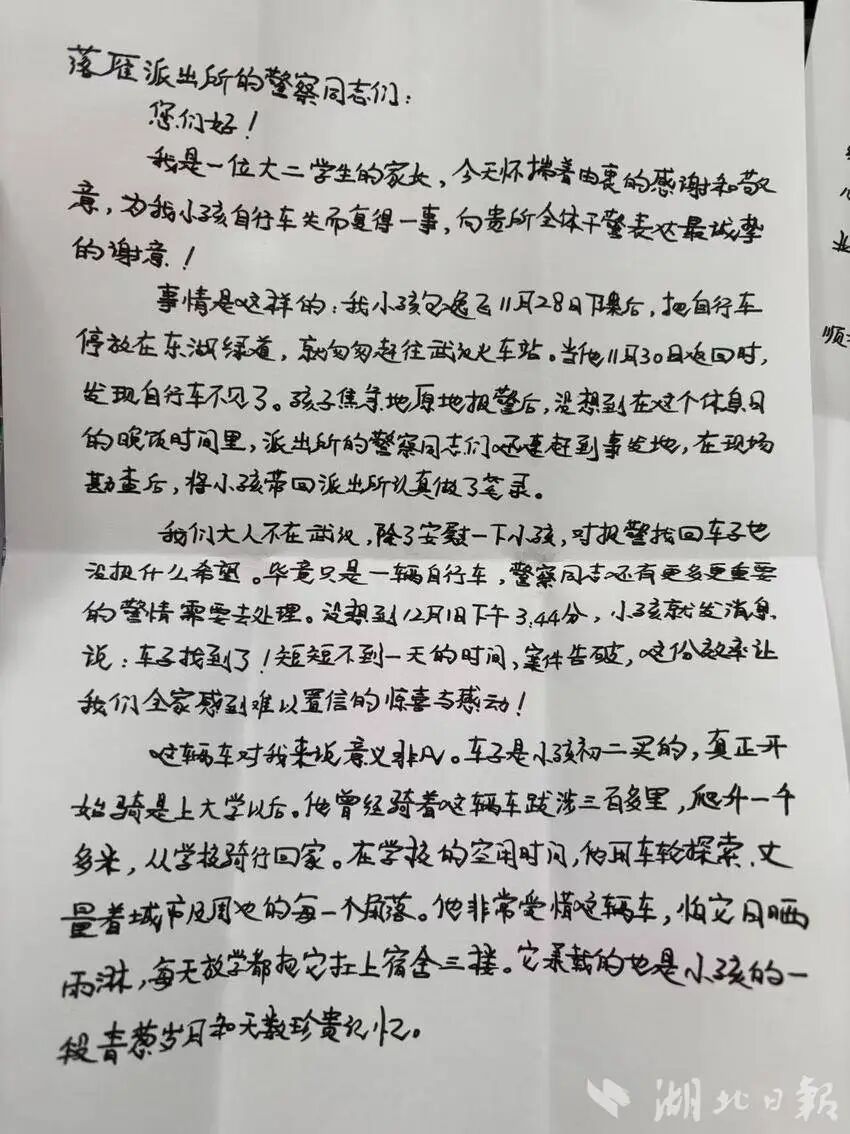 落雁派出所的警察同志们：
您们好！
我是一位大二学生的家长，今天怀揣着由衷的感谢和敬
意，为我小孩自行车失而复得一事，向贵所全体干警表达最诚挚
的谢意！
事情是这样的：我小孩包逸飞11月28日下课后，把自行车
停放在东湖绿道，就匆匆赶往武汉火车站。当他11月30日返回时，
发现自行车不见了。孩子焦急地原地报警后，没想到在这个休息日
的晚饭时间里，派出所的警察同志们迅速赶到事发地，在现场
勘查后，将小孩带回派出所认真做了笔录。
我们大人不在武汉，除了安慰一下小孩，对报警找回车子也
没报什么希望。毕竟只是一辆自行车，警察同志还有更多更重要
的警情需要去处理。没想到12月1日下午3.44分，小孩就发消息
说：车子找到了！短短不到一天的时间，案件告破，这份效率让
我们全家感到难以置信的惊喜与感动！
这辆车对我来说意义非凡。车子是小孩初二买的，真正开
始骑是上大学以后。他曾经骑着这辆车跋涉三百多里，爬升一千
多米，从学校骑行回家。在学校的空闲时间，他用车轮探索、丈
量着城市及周边的每一个角落。他非常爱惜这辆车，怕它日晒
雨淋，每天放学都把它扛上宿舍三楼。它承载的也是小孩的一
段青葱岁月和无数珍贵记忆。
顺
湖北日報